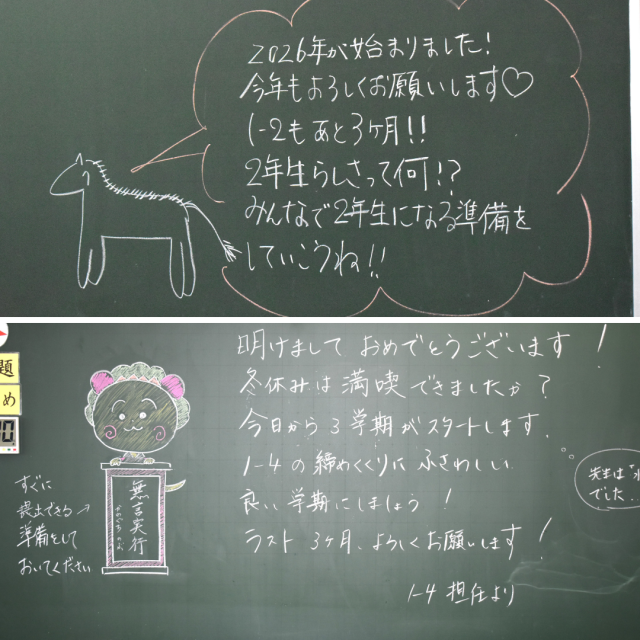 2026年が始まりました!
今年もよろしくお願いします♡
1-2もあと3ヶ月!!
2年生らしさって何!?
みんなで2年生になる準備を
していこうね!!
明けまして おめでとうございます!
冬休みは満喫できましたか?
今日から3学期がスタートします。
1-4の締めくくりにふさわしい
良い学期にしましょう!
ラスト 3ヶ月、よろしくお願いします!
1-4 担任より
題
め
すぐに
提出できる→
準備をして
おいてください
無言実行
先生は
でした